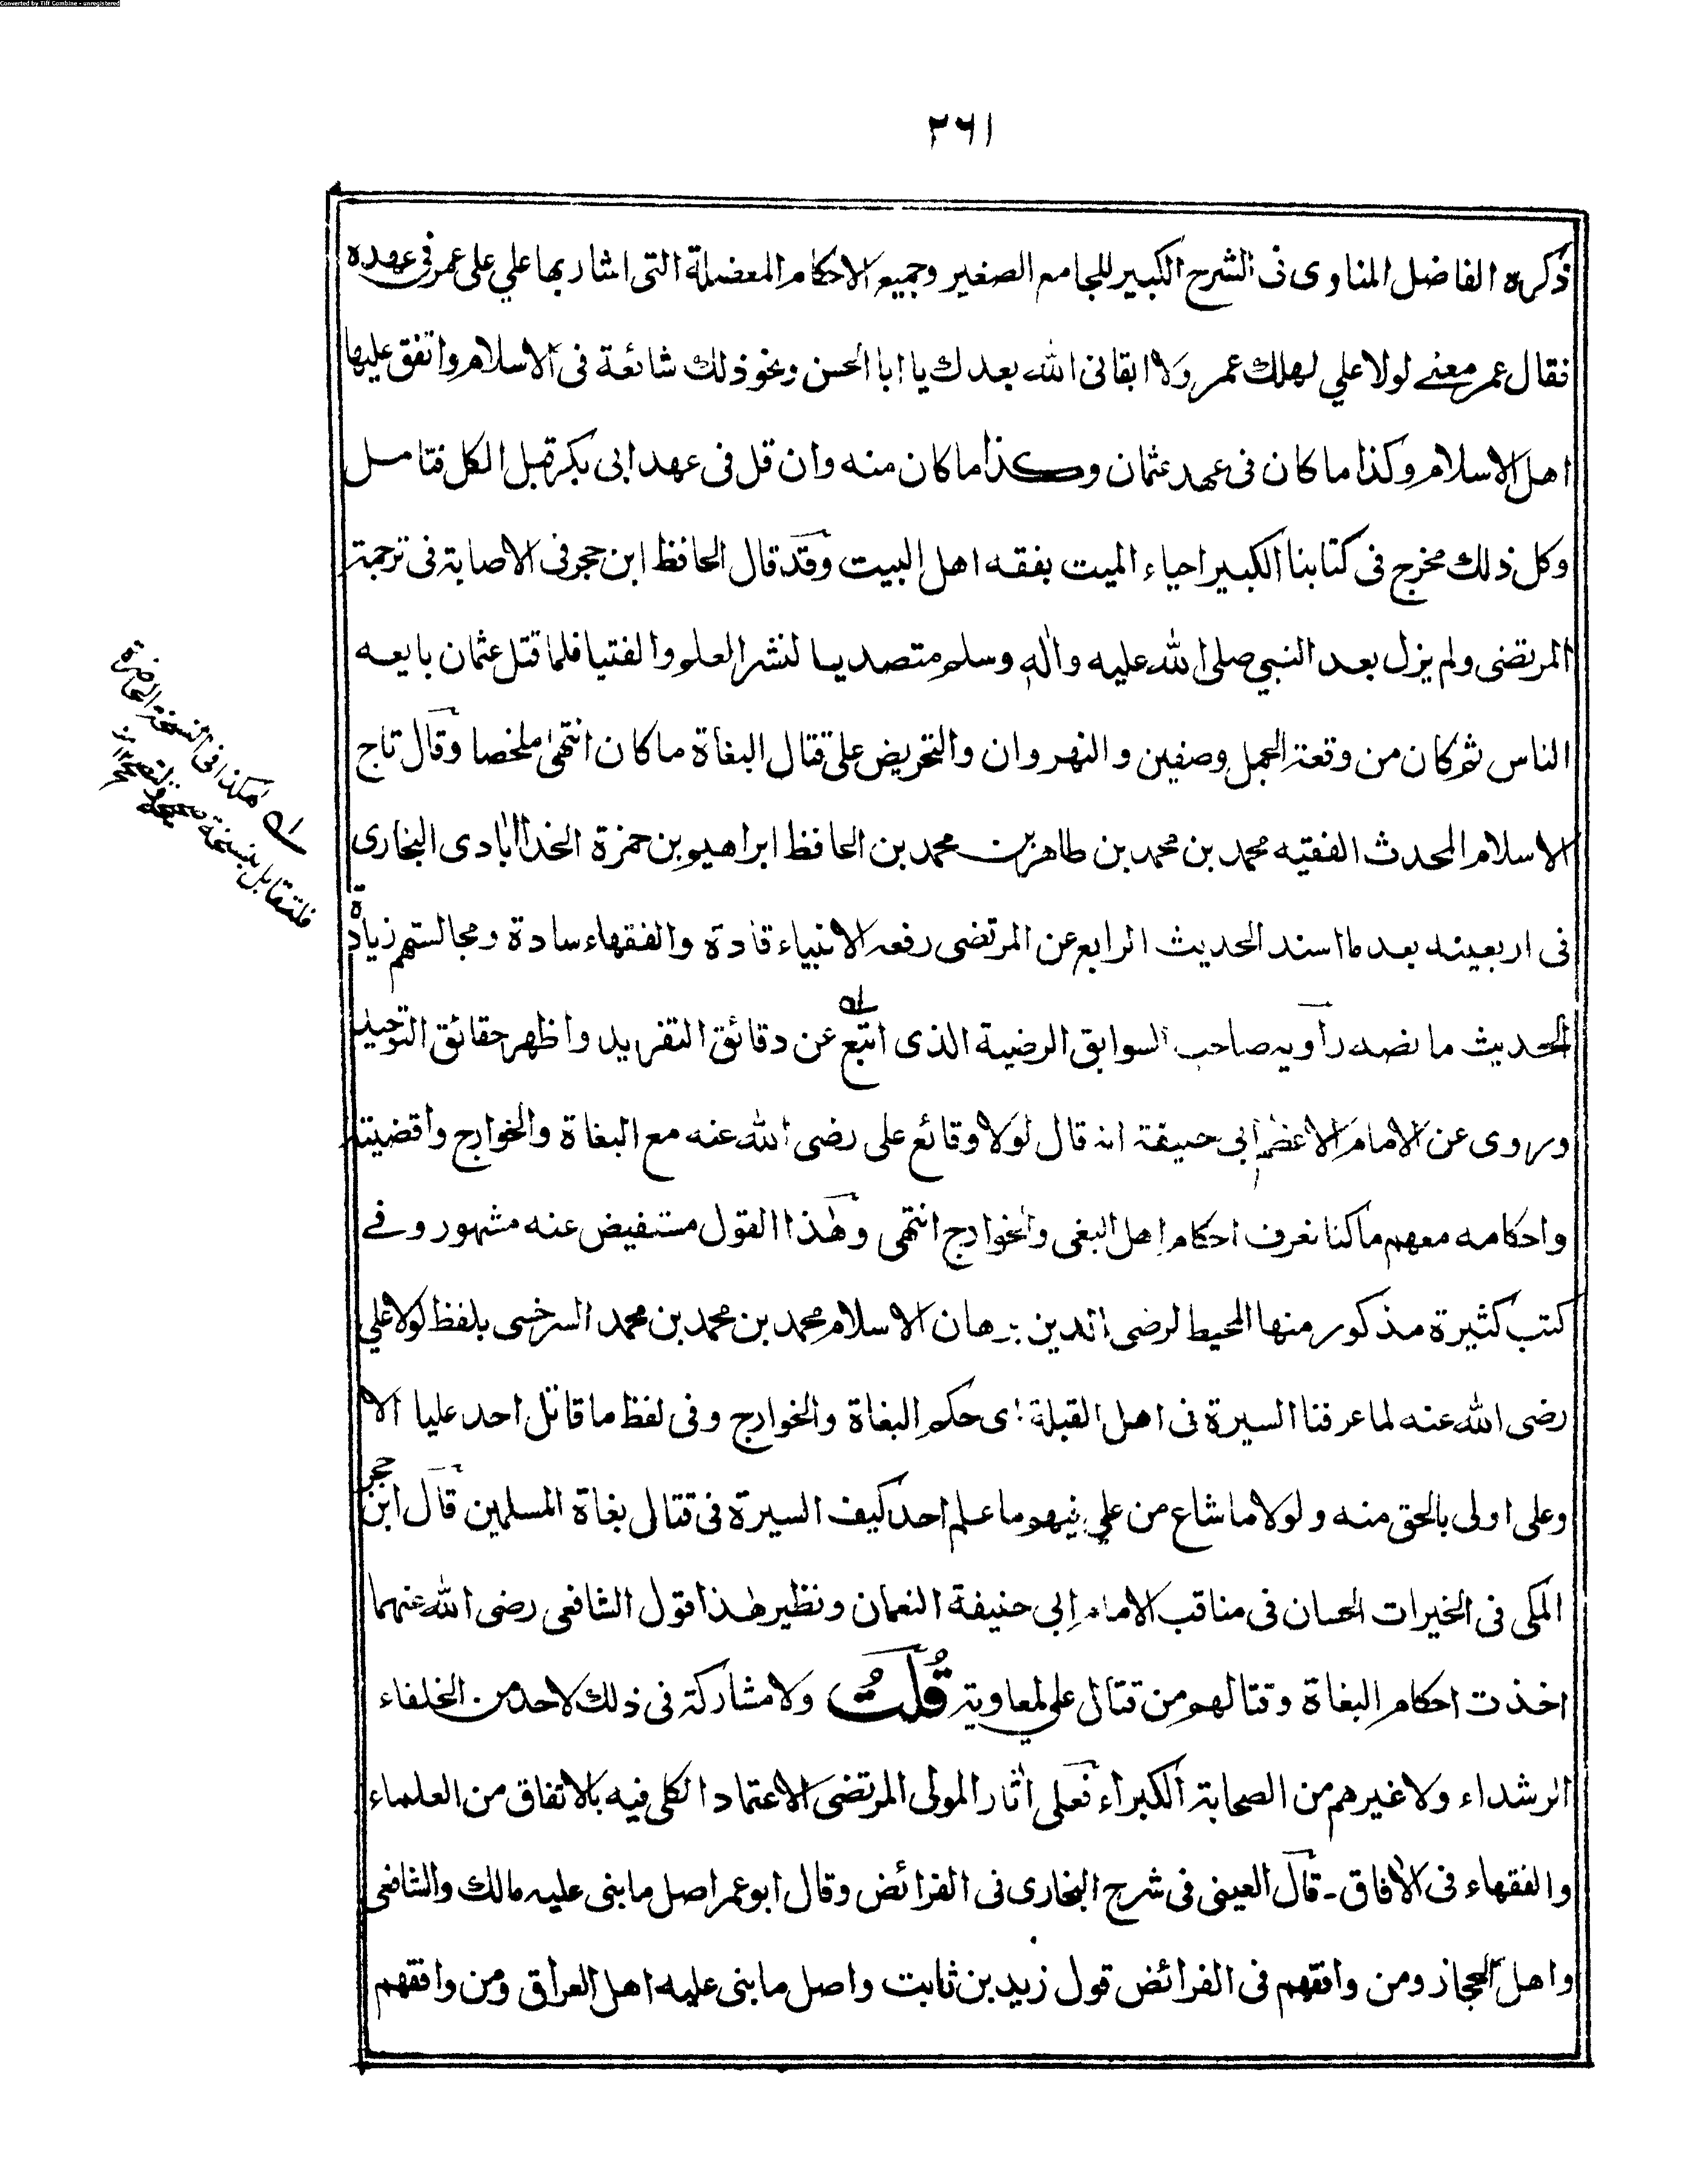 Converted by Tiff Combine - unregistered
٢٦١
ذكره الفاضل المناوى فى الشرح الكبير للجامع الصغير وجميع الاحكام المعضلة التى اشار بها علي على عمر فى عهده
فقال عمر معنے لولا علي لهلك عمر ولا ابقانى الله بعدك يا ابا الحسن ونحو ذلك شائعة فى الاسلام واتفق عليها
اهل الاسلام وكذا ما كان فى عهد عثمان وكذا ما كان منه وان قل فى عهد ابى بكر قبل الكل فتامل
وكل ذلك مخرج فى كتابنا الكبير احياء الميت بفقه اهل البيت وقد قال الحافظ ابن حجر فى الاصابة فى ترجمة
المرتضى ولم يزل بعد النبي صلى الله عليه واله وسلم متصديا لنشر العلم والفتيا فلما قتل عثمان بايعه
الناس ثم كان من وقعة الجمل وصفين والنهروان والتحريض على قتال البغاة ما كان انتهى ملخصا وقال تاج
الاسلام المحدث الفقيه محمد بن محمد بن طاهر بن محمد بن الحافظ ابراهيم بن حمزة الخذاابادى البخارى
فى اربعينه بعد ما اسند الحديث الرابع عن المرتضى رفعه الانبياء قادة والفقهاء سادة ومجالستهم زيادة
الحديث ما نصه راويه صاحب السوابق الرضية الذى اتبع عن دقائق التفريد واظهر حقائق التوحيد
وروى عن الامام الاعظم ابى حنيفة انه قال لولا وقائع على رضى الله عنه مع البغاة والخوارج واقضيته
واحكامه معهم ما كنا نعرف احكام اهل البغى والخوارج انتهى وهذا القول مستفيض عنه مشهور وفے
كتب كثيرة مذكور منها المحيط لرضى الدين برهان الاسلام محمد بن محمد بن محمد السرخسى بلفظ لولا علي
رضى الله عنه لما عرفنا السيرة فى اهل القبلة اى حكم البغاة والخوارج وفى لفظ ما قاتل احد عليا الا
وعلى اولى بالحق منه ولولا ما شاع من علي فيهم ما علم احد كيف السيرة فى قتال بغاة المسلمين قال ابن حجر
المكى فى الخيرات الحسان فى مناقب الامام ابى حنيفة النعمان ونظير هذا قول الشافعى رضى الله عنهما
اخذت احكام البغاة وقتالهم من قتال علي لمعاوية قُلتُ ولا مشاركة فى ذلك لاحد من الخلفاء
الرشداء ولا غيرهم من الصحابة الكبراء فعلى اثار المولى المرتضى الاعتماد الكلى فيه بالاتفاق من العلماء
والفقهاء فى الافاق - قال العينى فى شرح البخارى فى الفرائض وقال ابو عمر اصل ما بنى عليه مالك والشافعى
واهل الحجاز ومن وافقهم فى الفرائض قول زيد بن ثابت واصل ما بنى عليه اهل العراق ومن وافقهم
له هكذا فى النسخة الحاضرة
فلتقابل بنسخة صحيحة